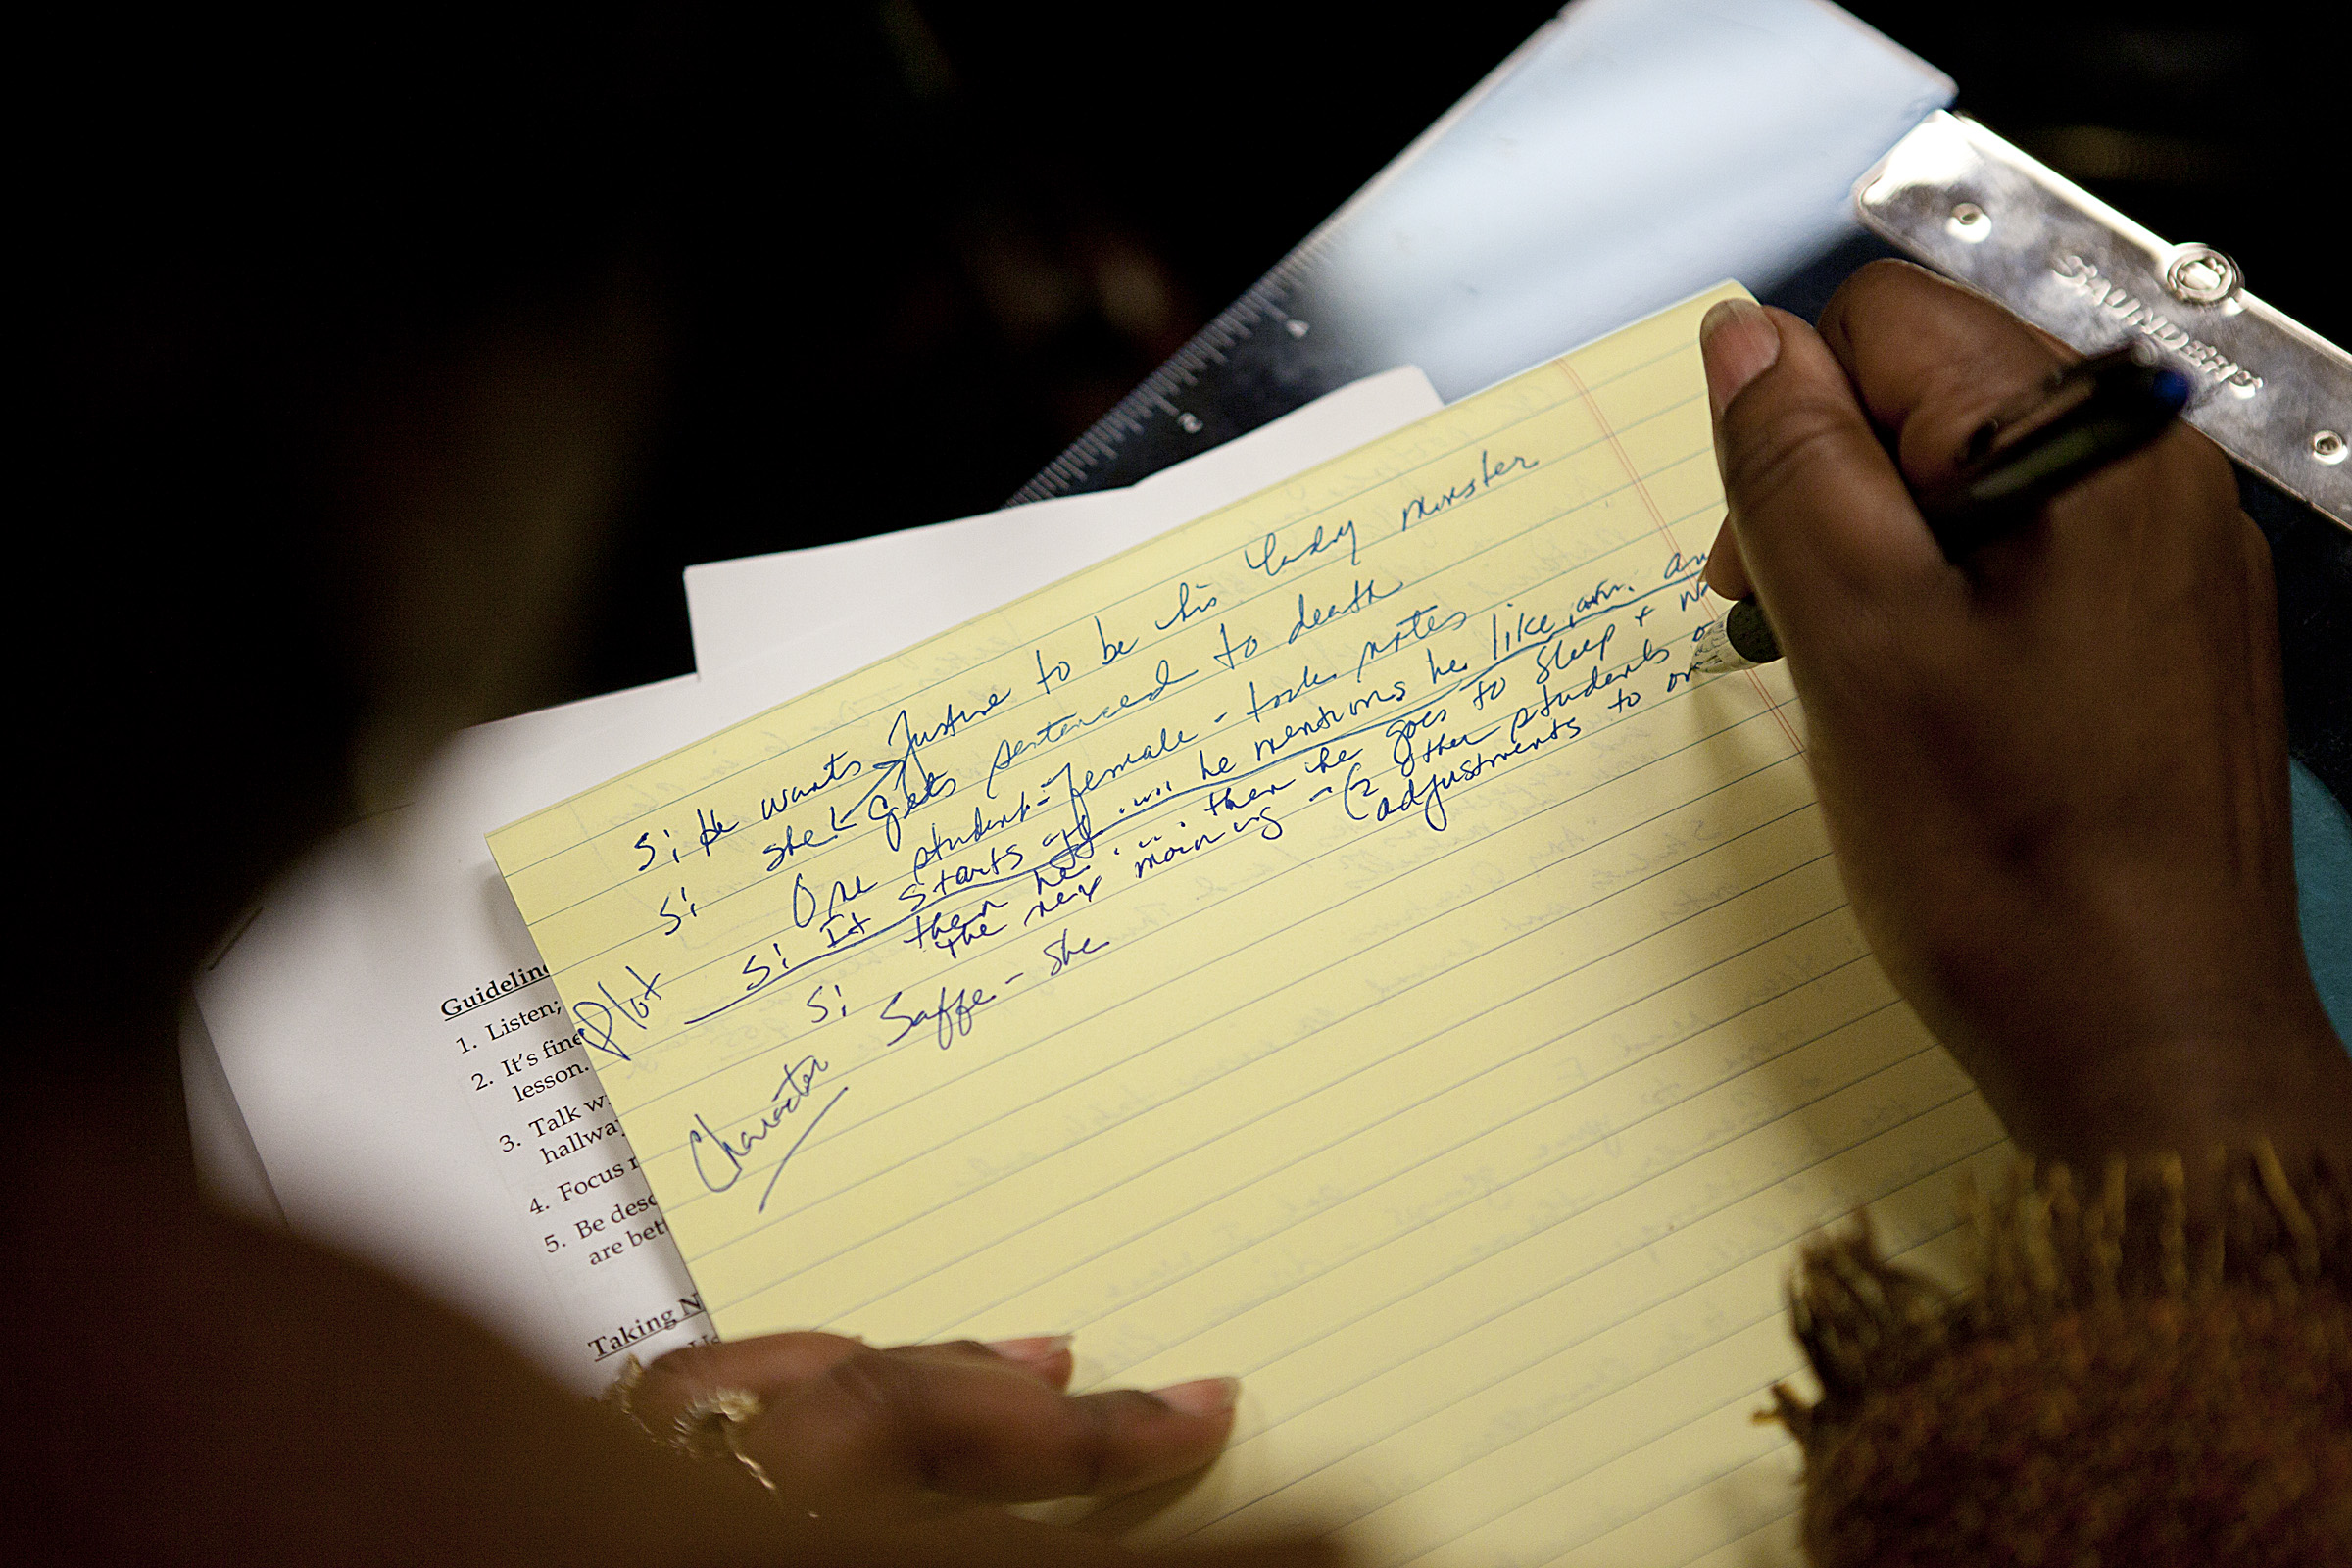 SAUNDERS
4
2
S: He wants Justine to be his Lady minister
S: she gets sentenced to death
One student - female - took notes
Plot S: It starts off "..." he mentions he like, am, an
S: then he ... then he goes to sleep +
the next morning - (2 other students
adjustments to on
Character Saffe - she
Guideline
1. Listen;
2. It's fine
lesson.
3. Talk w
hallway
4. Focus r
5. Be desc
are bet
Taking N